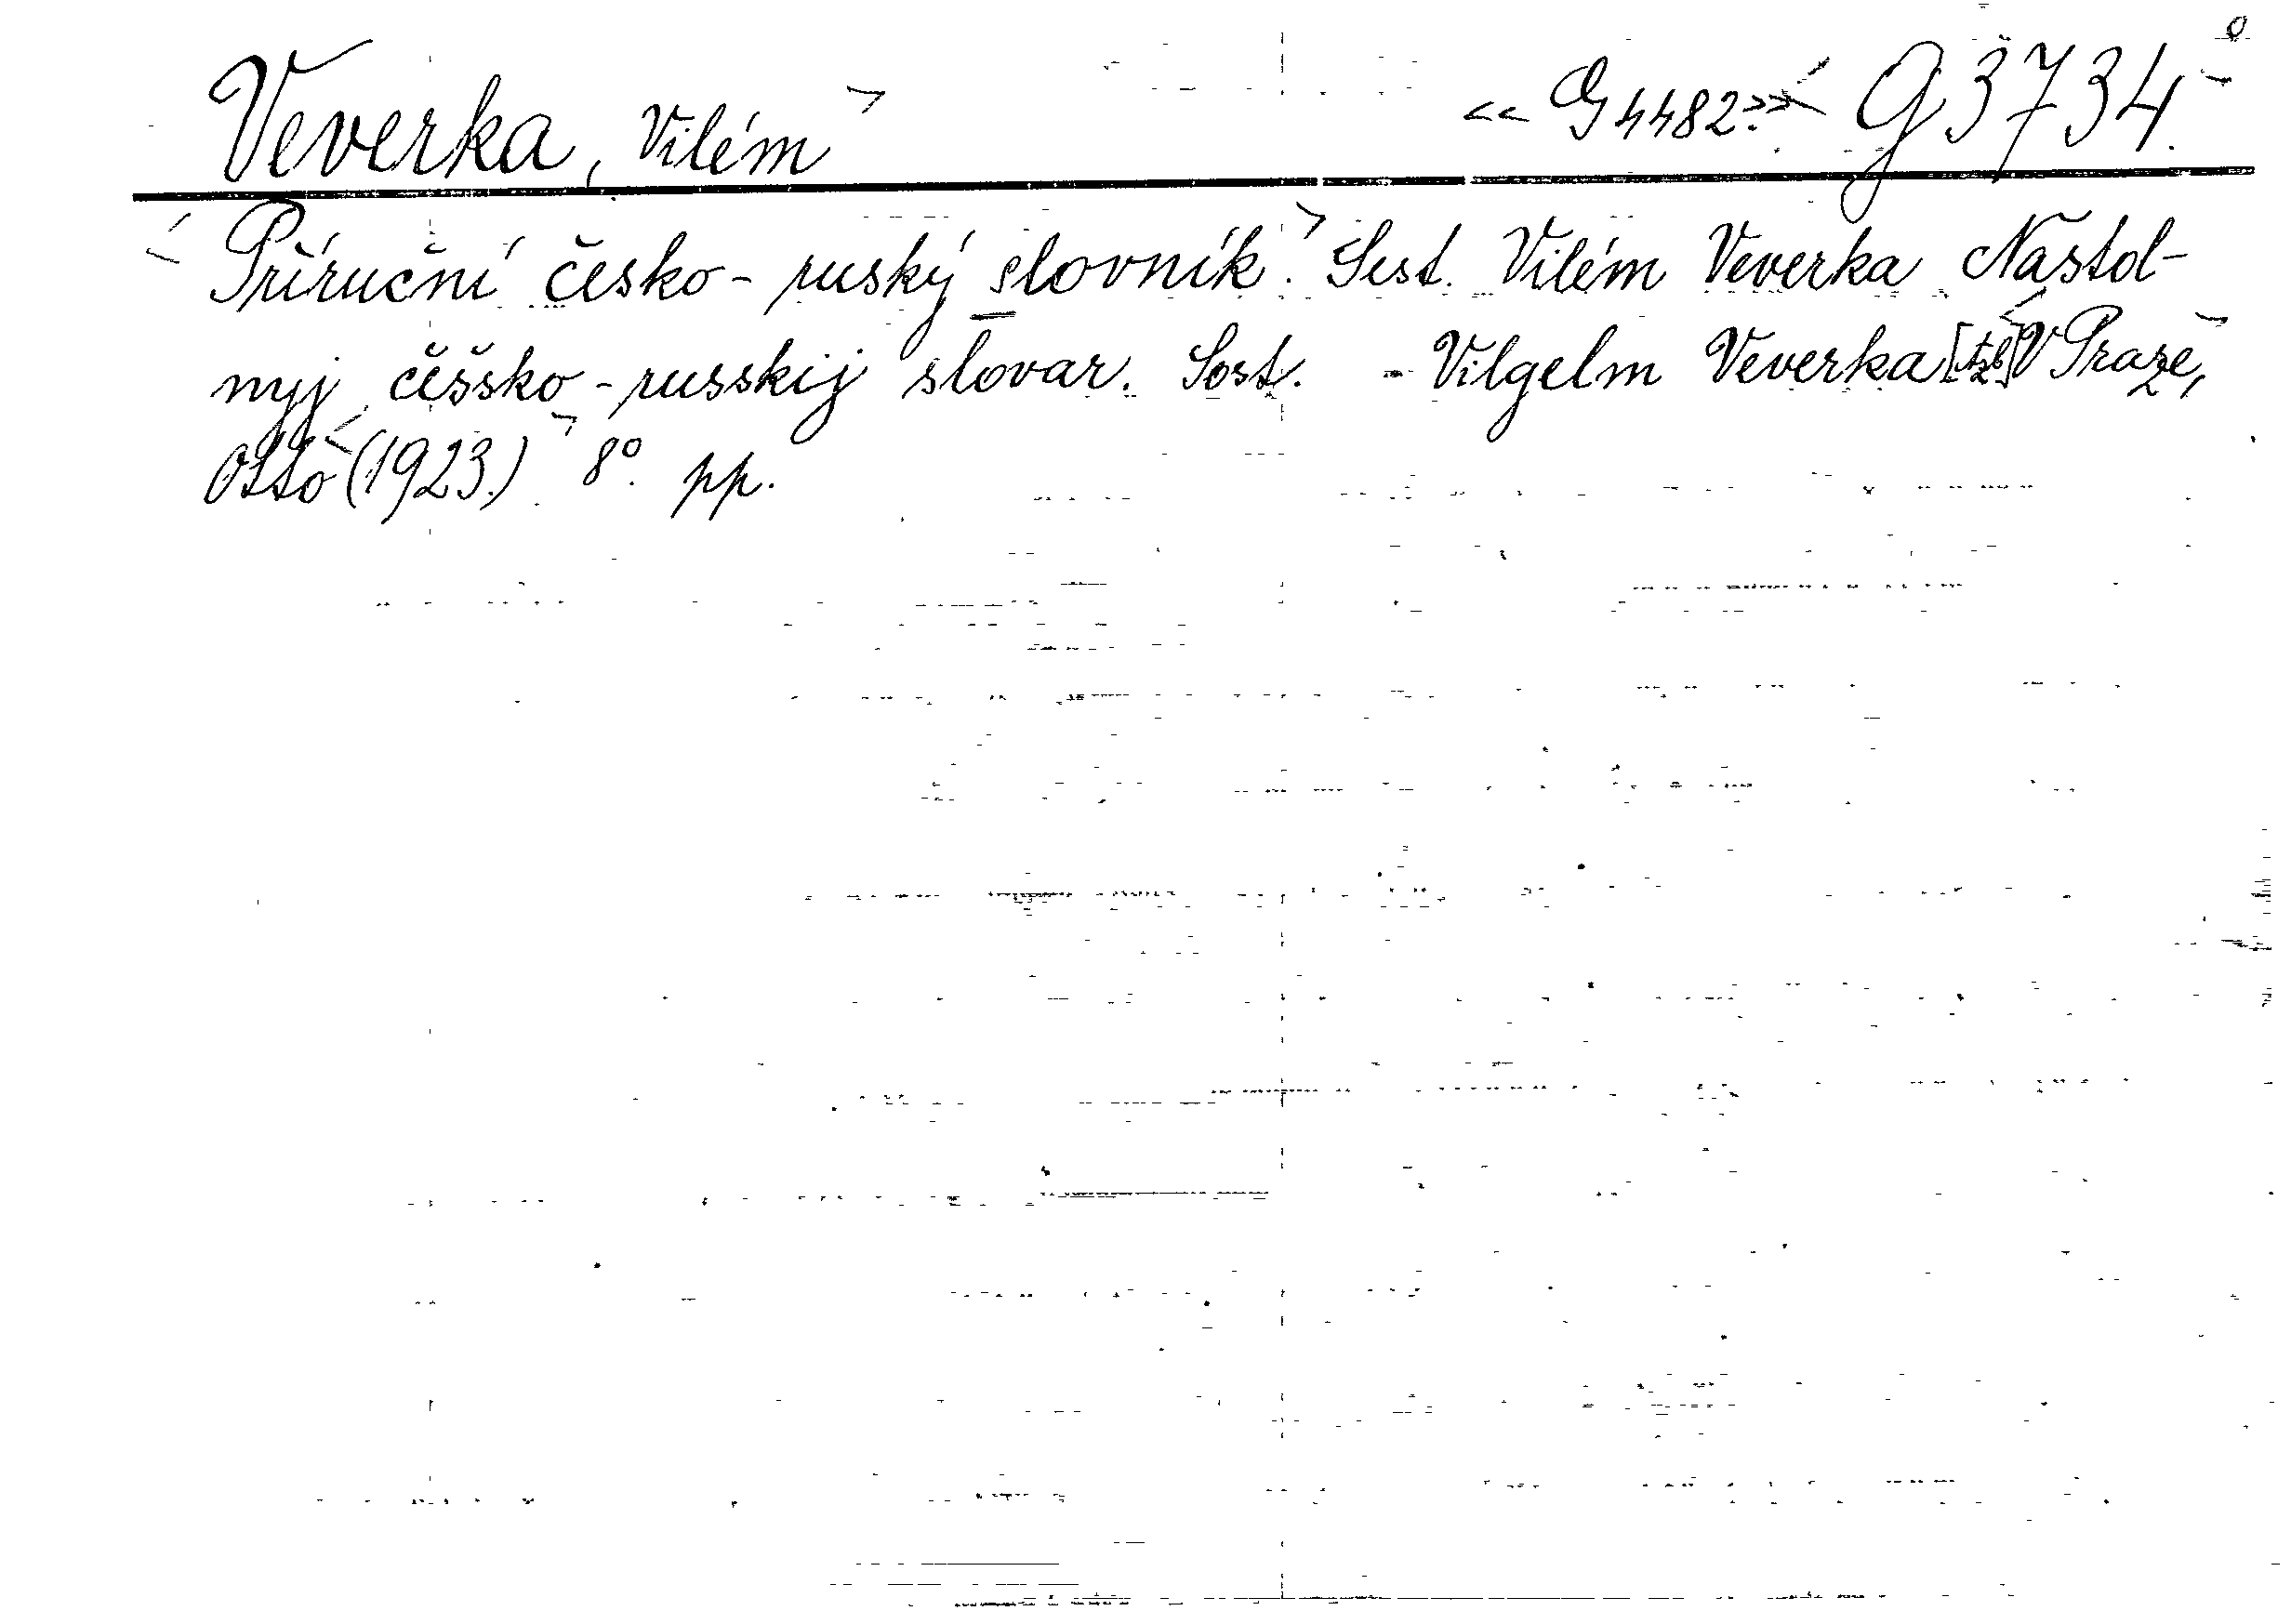 Veverka, Vilém « G 4482.» G 3734.
Příruční česko-ruský slovník. Sest. Vilém Veverka Nastol-
nyj češsko-russkij slovar. Sost. - Vilgelm Veverka V Praze,
Otto (1923.) 8°. pp.